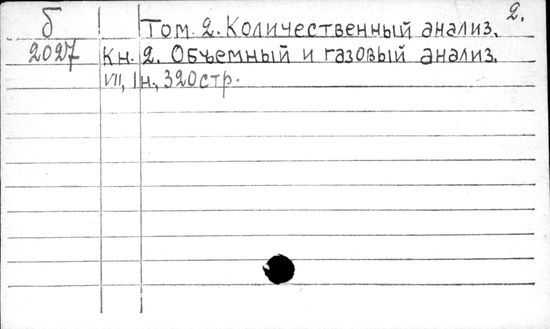 2.
б Том. 2. Количественный анализ.
2027 Кн. 2. Объемный и газовый анализ.
VII, 1 н., 320 стр.